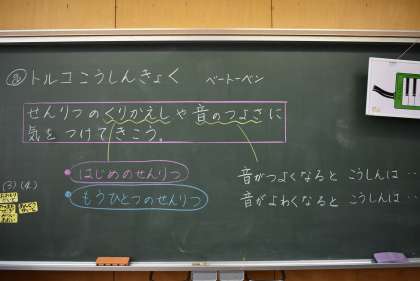 トルコこうしんきょく ベートーベン
せんりつのくりかえしや音のつよさに
気をつけてきこう。
はじめのせんりつ
もうひとつのせんりつ
音がつよくなると こうしんは‥
音がよわくなると こうしんは‥
(3)(4)